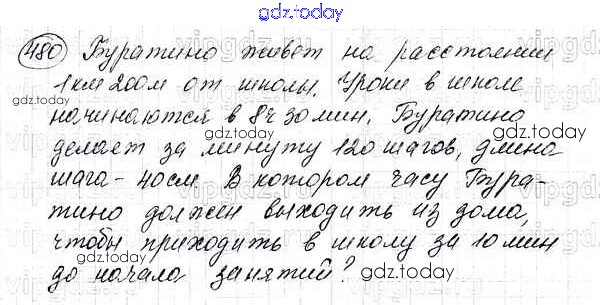 gdz.today
480 Буратино живёт на расстоянии
1 км 200 м от школы. Уроки в школе
gdz.today
начинаются в 8 ч 30 мин. Буратино
gdz.today
делает за минуту 120 шагов, длина
шага - 40 см. В котором часу Бура-
gdz.today
тино должен выходить из дома,
чтобы приходить в школу за 10 мин
до начала занятий?
gdz.today
gdz.today